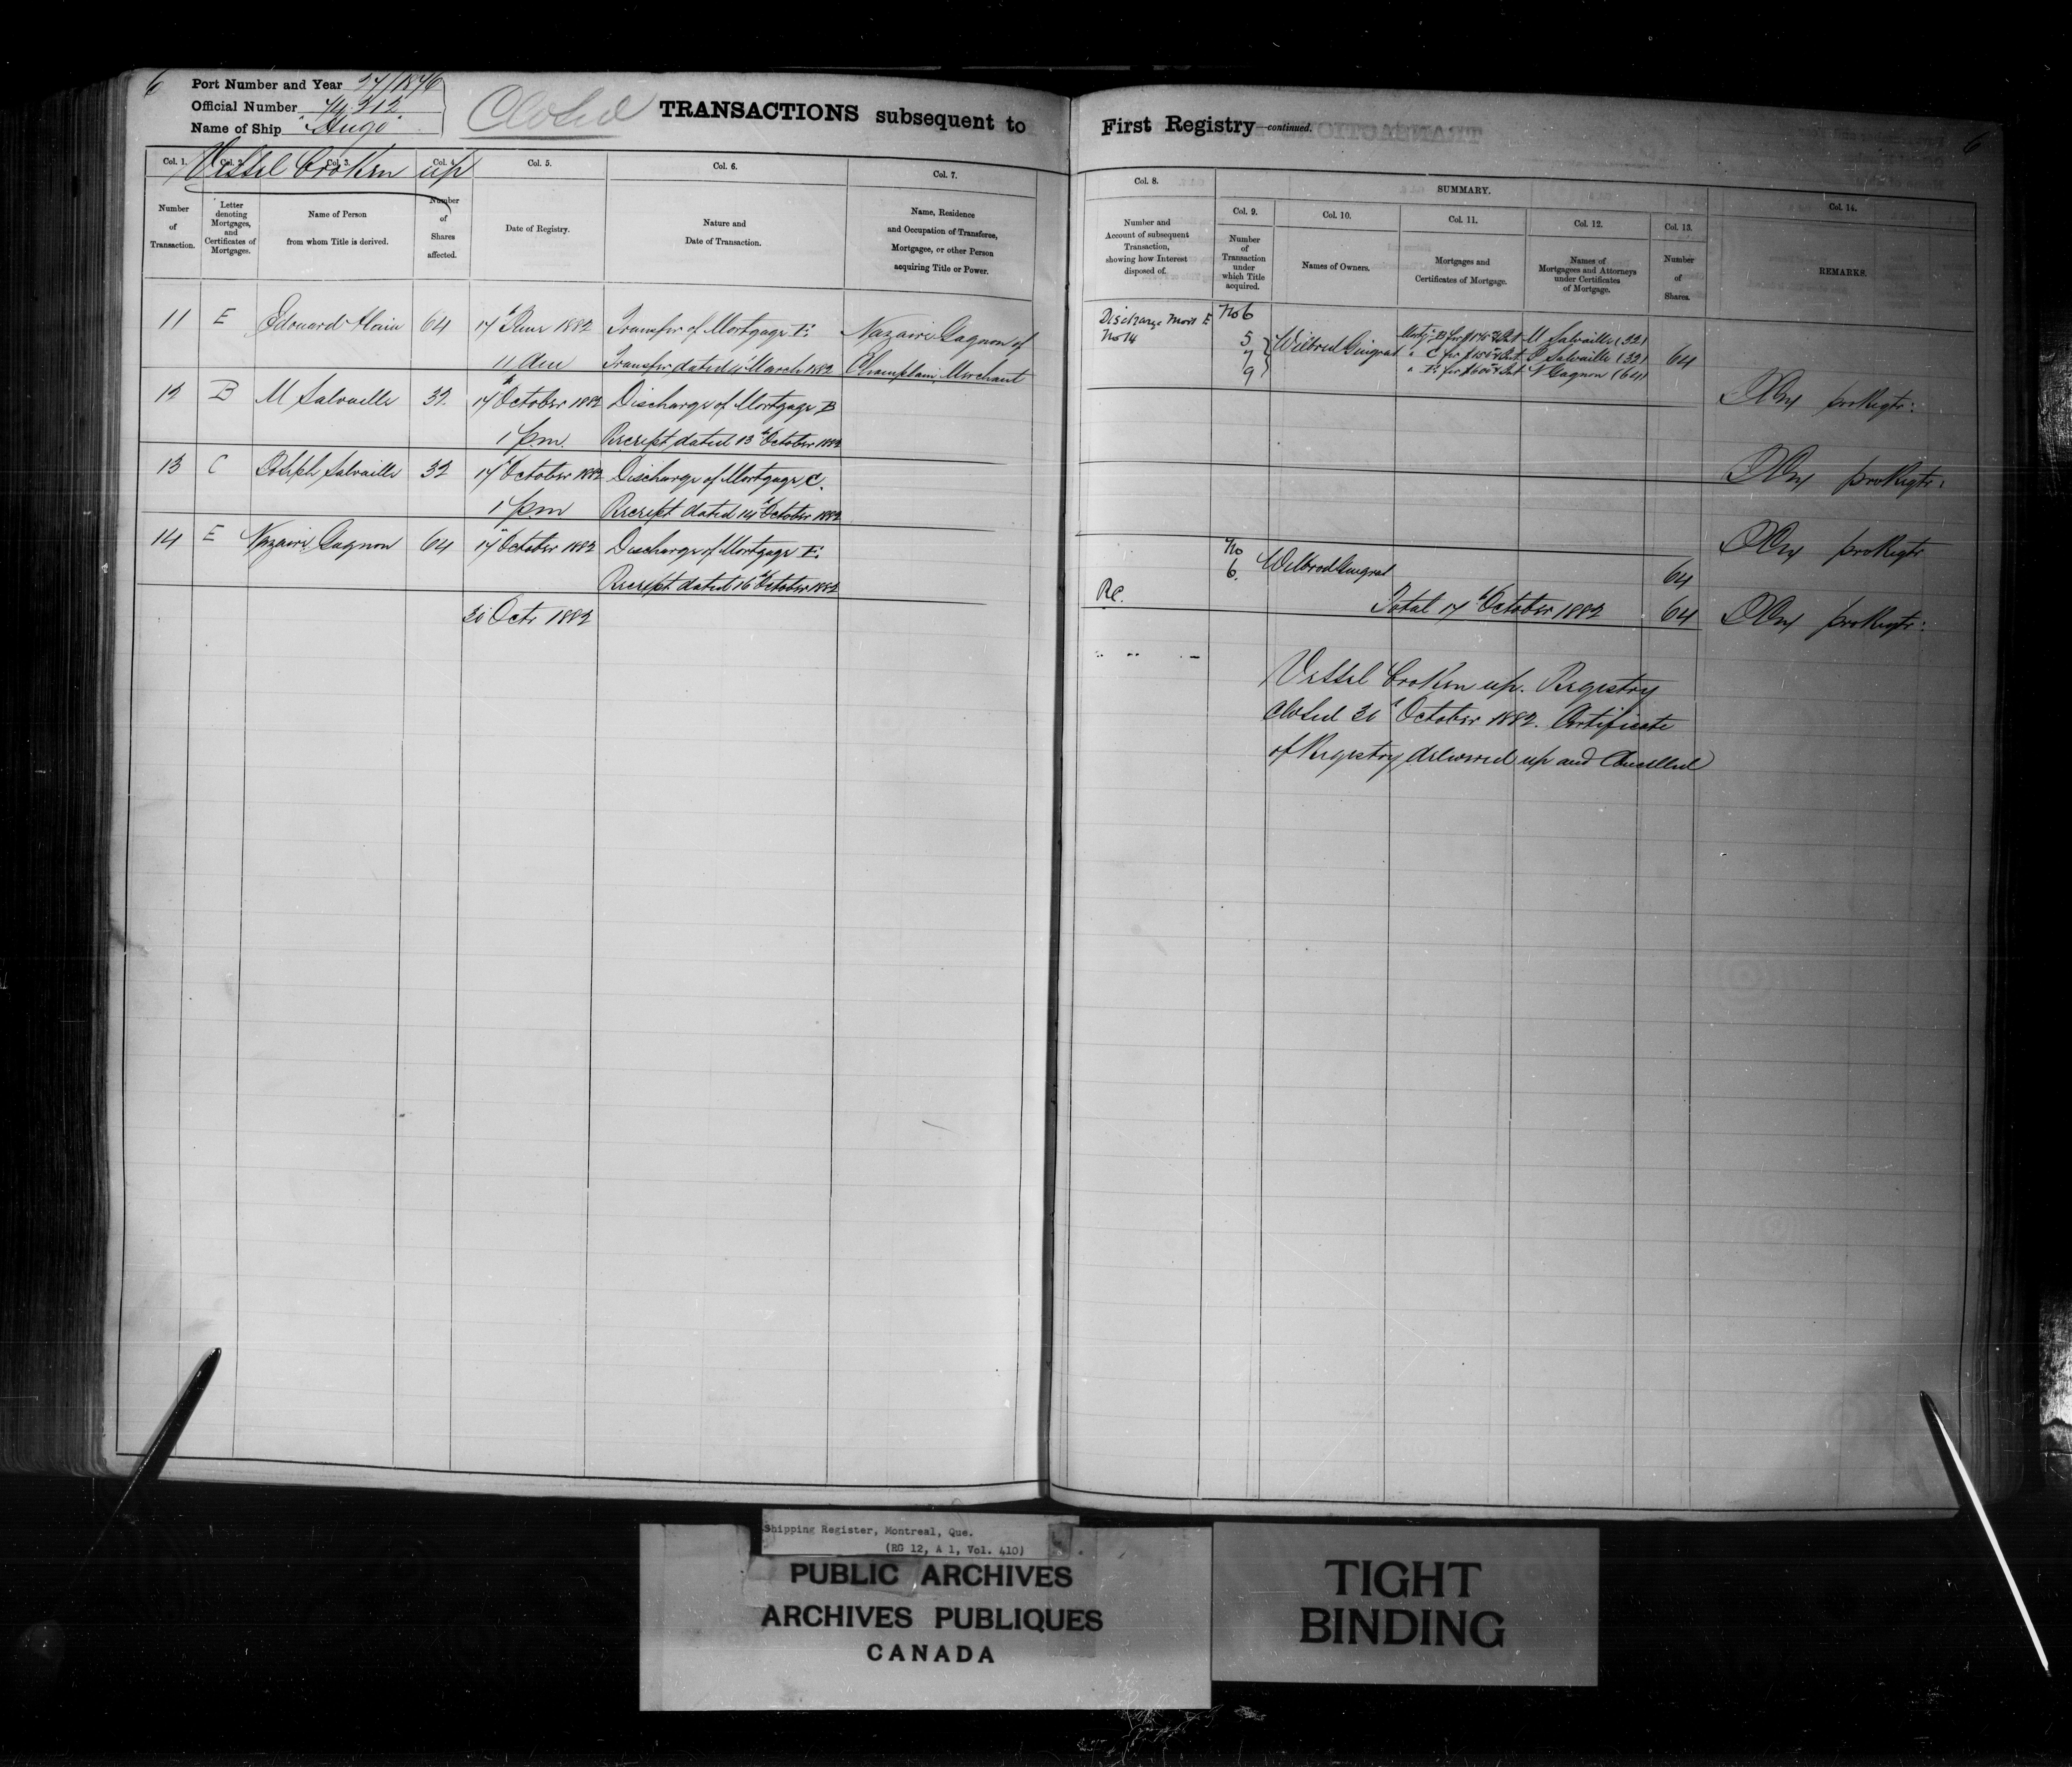 6
Port Number and Year 27/1876
Official Number 74212
Name of Ship "Hugo"
Closed
TRANSACTIONS subsequent to
First Registry—continued.
6
Vessel broken up
Col. 1. Col. 2. Col. 3. Col. 4. Col. 5. Col. 6. Col. 7.
Number of Transaction.
Letter denoting Mortgages, and Certificates of Mortgages.
Name of Person from whom Title is derived.
Number of Shares affected.
Date of Registry.
Nature and Date of Transaction.
Name, Residence and Occupation of Transferee, Mortgagee, or other Person acquiring Title or Power.
Col. 8.
SUMMARY.
Col. 9. Col. 10. Col. 11. Col. 12. Col. 13. Col. 14.
Number and Account of subsequent Transaction, showing how Interest disposed of.
Number of Transaction under which Title acquired.
Names of Owners.
Mortgages and Certificates of Mortgage.
Names of Mortgagees and Attorneys under Certificates of Mortgage.
Number of Shares.
REMARKS.
11 E Edouard Alain 64 17 June 1882 Transfer of Mortgage E. Nazaire Gagnon of
11 am Transfer dated March 1882 Champlain, Merchant
12 B M Salvaille 32 17 October 1882 Discharge of Mortgage B
1 p.m. Receipt dated 13th October 1882
13 C Joseph Salvaille 32 17 October 1882 Discharge of Mortgage C.
1 pm Receipt dated 14th October 1882
14 E Nazaire Gagnon 64 17 October 1882 Discharge of Mortgage E.
Receipt dated 16th October 1882
30 Octr 1882
Discharge Mort E No 6
No 14
5
7
9
Wilbrod Gingras
Mortg. B for M Salvaille (32)
" C for J Salvaille (32) 64
" E for $600 & Int N Gagnon (64)
pro Regtr:
pro Regtr:
pro Regtr
No
6. Wilbrod Gingras 64
Re.
Total 17 October 1882 64 pro Regtr:
Vessel broken up. Registry
closed 30 October 1882. Certificate
of Registry delivered up and Cancelled
Shipping Register, Montreal, Que.
(RG 12, A 1, Vol. 410)
PUBLIC ARCHIVES
ARCHIVES PUBLIQUES
CANADA
TIGHT
BINDING